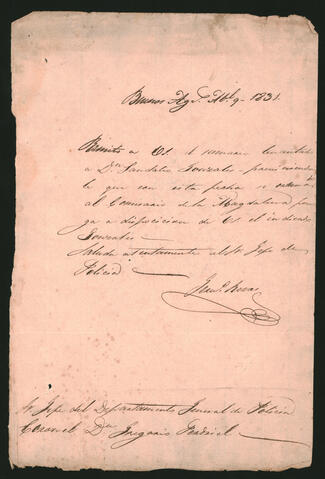 Buenos Ay.s Ab.l 9. 1831.
Remito a Us. el sumario levantado
a Dn Sandalio Gonzales previniendo
le que con esta fecha se ordena
al Comisario de la Magdalena pon
ga a disposicion de Us. el indicado
Gonzales
Saluda atentamente al Sr. Gefe de
Policia
Sr Gefe del Departamento General de Policia
Coronel Dn Gregorio Perdriel